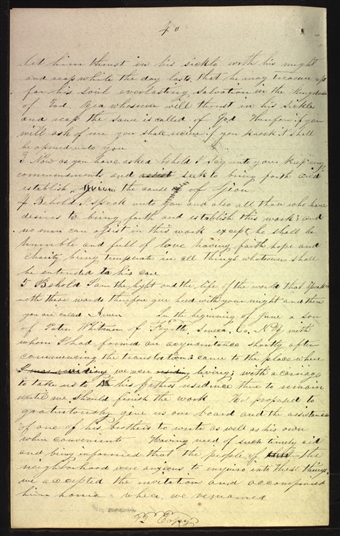 40
let him thrust in his sickle with his might
and reap while the day lasts, that he may treasure up
for his soul everlasting salvation in the kingdom
of God. Yea whosoever will thrust in his sickle
and reap the same is called of God therefore if you
will ask of me you shall receive if you knock it shall
be opened unto you
3 Now as you have asked behold I say unto you keep my
commandments and seek to bring forth and
establish the cause of Zion
4 Behold I speak unto you and also all those who have
desires to bring forth and establish this work; and
no man can assist in this work except he shall be
humble and full of love having faith hope and
charity being temperate in all things whatsoever shall
be entrusted to his care
5 Behold I am the light and the life of the world that speak
these words therefore give heed with your might and then
you are called Amen In the beginning of June a son
of Peter Whitmer of Fayette, Seneca Co, N.Y. with
whom I had formed an acquaintance shortly after
commencing the translation came to the place where
we were living; with a carriage
to take us to his fathers residence there to remain
until we should finish the work He proposed to
gratuitously give us our board and the assistance
of one of his brothers to write as well as his own
when convenient Having need of such timely aid
and being informed that the people of the
neighbourhood were anxious to enquire into these things
we accepted the invitation and accompanied
him home where we remained